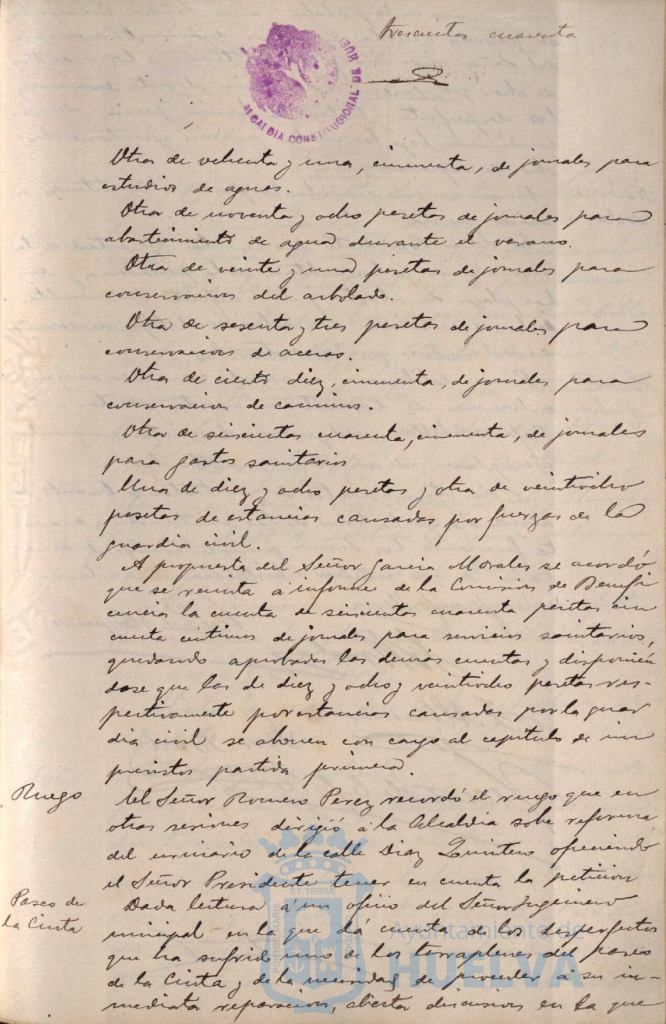 trescientos cuarenta
ALCALDIA CONSTITUCIONAL DE HUEL
Otra de ochenta y una, cincuenta, de jornales para
estudios de aguas.
Otra de noventa y ocho pesetas de jornales para
abastecimiento de agua durante el verano.
Otra de veinte y una pesetas de jornales para
conservacion del arbolado.
Otra de sesenta y tres pesetas de jornales para
conservacion de aceras.
Otra de ciento diez, cincuenta, de jornales para
conservacion de caminos.
Otra de seiscientas cuarenta, cincuenta, de jornales
para gastos sanitarios
Una de diez y ocho pesetas y otra de veintiocho
pesetas de estancias causadas por fuerzas de la
guardia civil.
A propuesta del Señor Garcia Morales se acordó
que se remita á informe de la Comision de Benefi
cencia la cuenta de seiscientas cuarenta pesetas cin
cuenta céntimos de jornales para servicios sanitarios,
quedando aprobadas las demás cuentas y disponien
dose que las de diez y ocho y veintiocho pesetas res-
pectivamente por estancias causadas por la guar
dia civil se abonen con cargo al capitulo de im
previstos partida primera.
Ruego
El Señor Romero Perez recordó el ruego que en
otras sesiones dirigió á la Alcaldia sobre reforma
del urinario de la calle Diaz Quintero ofreciendo
el Señor Presidente tener en cuenta la peticion
Paseo de
la Cinta
Dada lectura á un oficio del Señor Ingeniero
municipal en la que dá cuenta de los desperfectos
que ha sufrido uno de los terraplenes del paseo
de la Cinta y de la necesidad de proceder á su in-
mediata reparacion, abierta discusion en la que
Ayuntamiento de
HUELVA